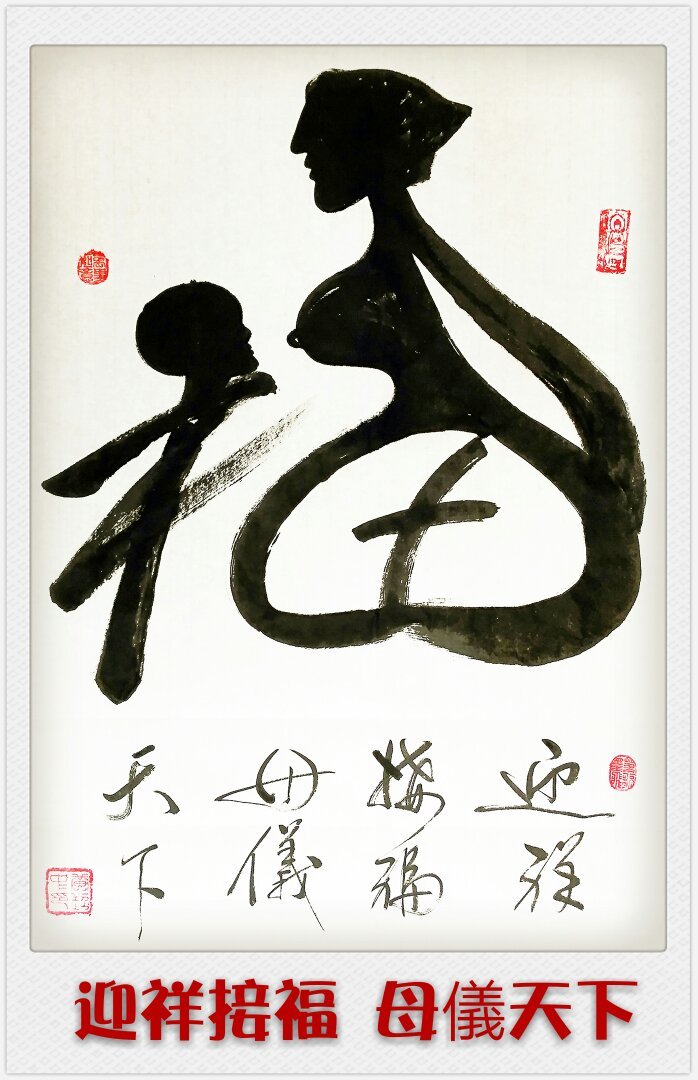 福
迎祥
接福
母儀
天下
迎祥接福 母儀天下